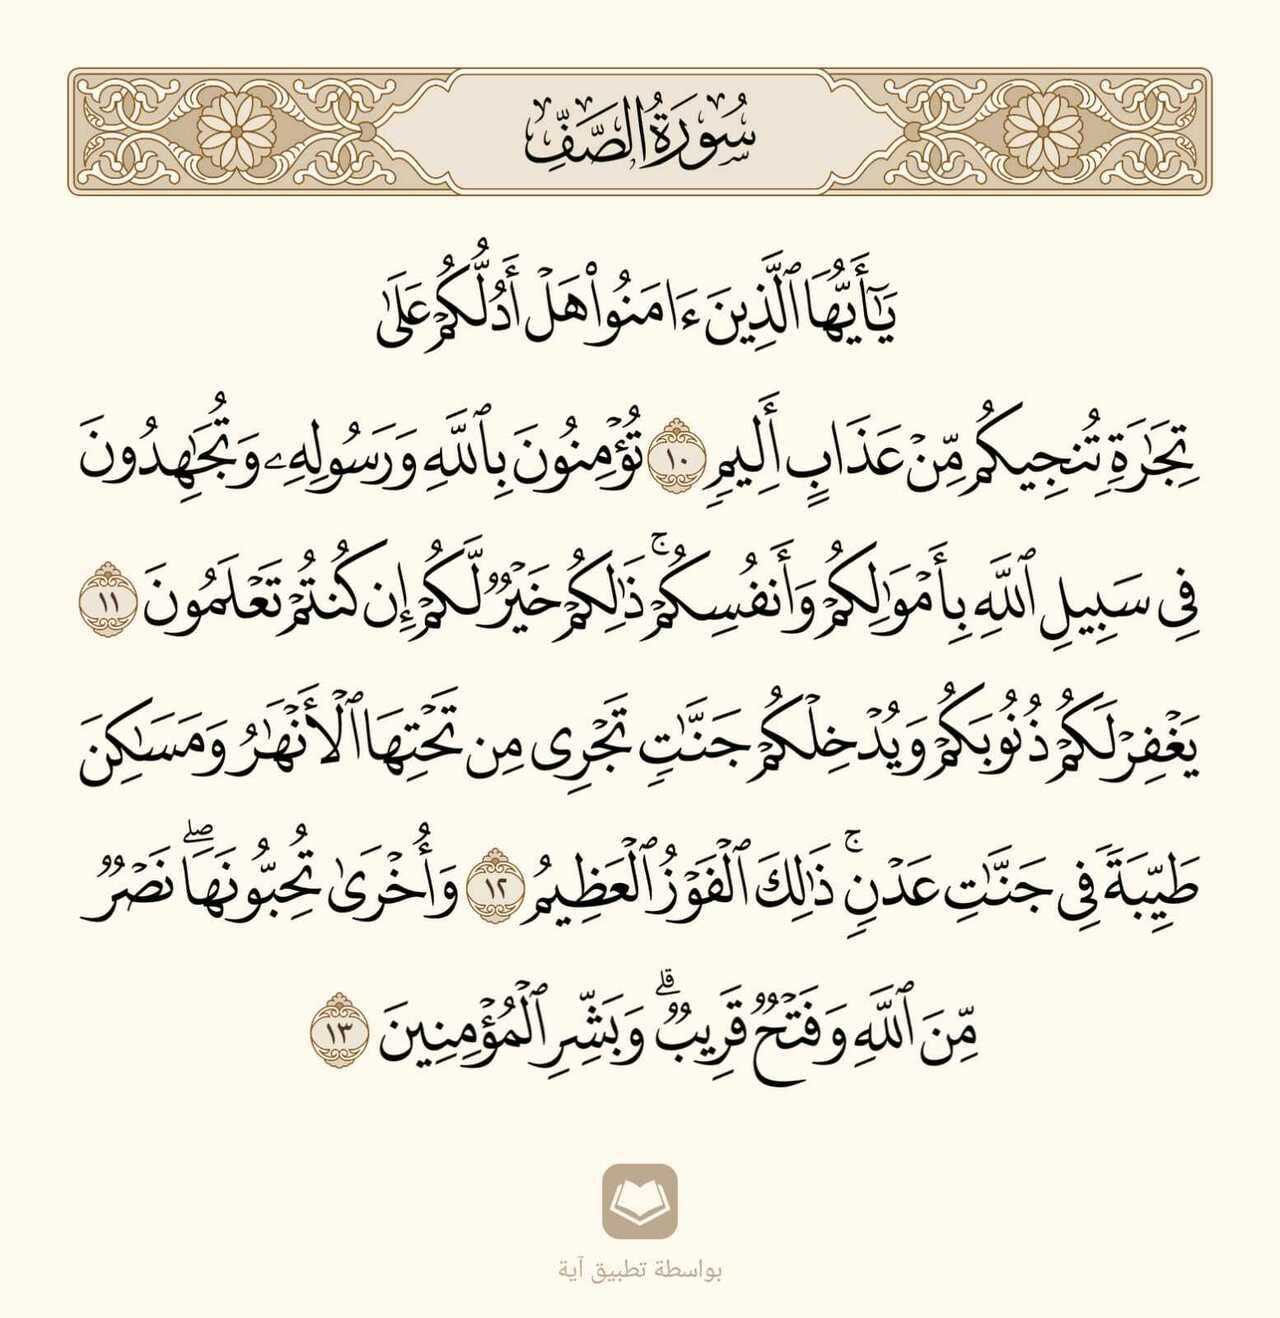 سُورَةُ الصَّفِّ
يَٰٓأَيُّهَا ٱلَّذِينَ ءَامَنُوا۟ هَلْ أَدُلُّكُمْ عَلَىٰ
تِجَٰرَةٍ تُنجِيكُم مِّنْ عَذَابٍ أَلِيمٍ ١٠ تُؤْمِنُونَ بِٱللَّهِ وَرَسُولِهِۦ وَتُجَٰهِدُونَ
فِى سَبِيلِ ٱللَّهِ بِأَمْوَٰلِكُمْ وَأَنفُسِكُمْ ۚ ذَٰلِكُمْ خَيْرٌ لَّكُمْ إِن كُنتُمْ تَعْلَمُونَ ١١
يَغْفِرْ لَكُمْ ذُنُوبَكُمْ وَيُدْخِلْكُمْ جَنَّٰتٍ تَجْرِى مِن تَحْتِهَا ٱلْأَنْهَٰرُ وَمَسَٰكِنَ
طَيِّبَةً فِى جَنَّٰتِ عَدْنٍ ۚ ذَٰلِكَ ٱلْفَوْزُ ٱلْعَظِيمُ ١٢ وَأُخْرَىٰ تُحِبُّونَهَا ۖ نَصْرٌ
مِّنَ ٱللَّهِ وَفَتْحٌ قَرِيبٌ ۗ وَبَشِّرِ ٱلْمُؤْمِنِينَ ١٣
بواسطة تطبيق آية